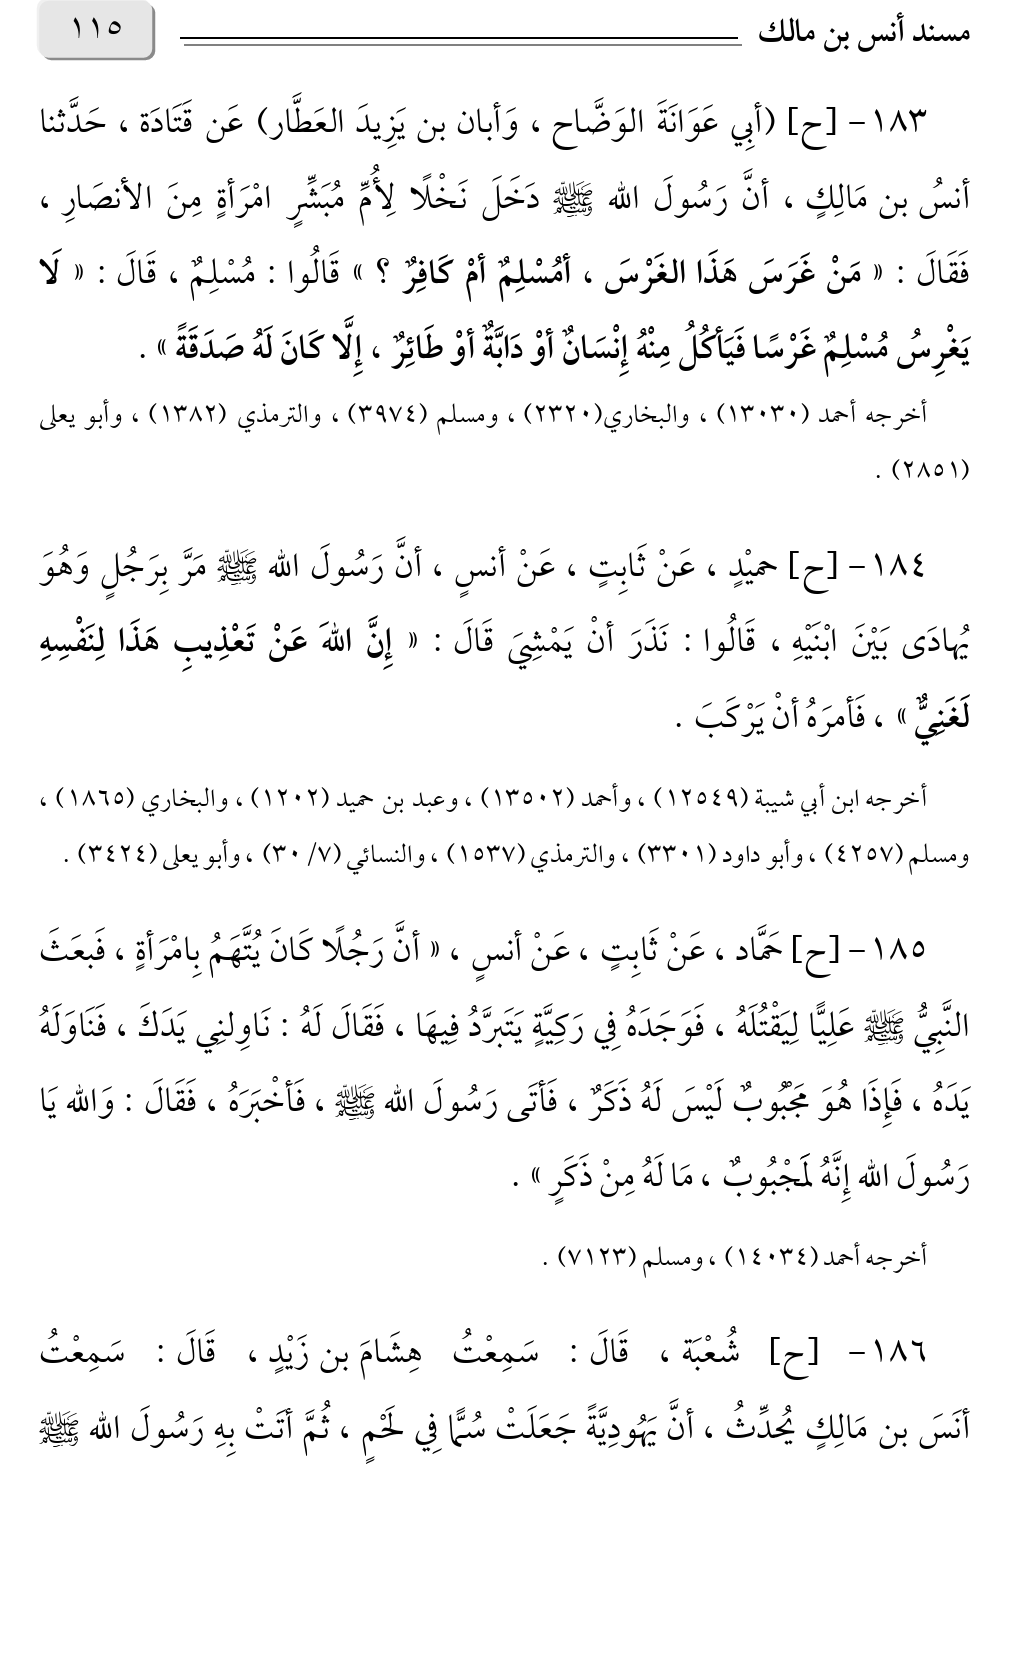 مسند أنس بن مالك ١١٥
١٨٣- [ح] (أبِي عَوَانَةَ الوَضَّاح ، وَأبان بن يَزِيدَ العَطَّار) عَن قَتَادَة ، حَدَّثنا
أنسُ بن مَالِكٍ ، أنَّ رَسُولَ الله ﷺ دَخَلَ نَخْلًا لِأُمِّ مُبَشِّرٍ امْرَأةٍ مِنَ الأنصَارِ ،
فَقَالَ : « مَنْ غَرَسَ هَذَا الغَرْسَ ، أمُسْلِمٌ أمْ كَافِرٌ ؟ » قَالُوا : مُسْلِمٌ ، قَالَ : « لَا
يَغْرِسُ مُسْلِمٌ غَرْسًا فَيَأكُلُ مِنْهُ إنْسَانٌ أوْ دَابَّةٌ أوْ طَائِرٌ ، إلَّا كَانَ لَهُ صَدَقَةً » .
أخرجه أحمد (١٣٠٣٠) ، والبخاري(٢٣٢٠) ، ومسلم (٣٩٧٤) ، والترمذي (١٣٨٢) ، وأبو يعلى
(٢٨٥١) .
١٨٤- [ح] حميْدٍ ، عَنْ ثَابِتٍ ، عَنْ أنسٍ ، أنَّ رَسُولَ الله ﷺ مَرَّ بِرَجُلٍ وَهُوَ
يُهادَى بَيْنَ ابْنَيْهِ ، قَالُوا : نَذَرَ أنْ يَمْشِيَ قَالَ : « إنَّ اللهَ عَنْ تَعْذِيبِ هَذَا لِنَفْسِهِ
لَغَنِيٌّ » ، فَأمرَهُ أنْ يَرْكَبَ .
أخرجه ابن أبي شيبة (١٢٥٤٩) ، وأحمد (١٣٥٠٢) ، وعبد بن حميد (١٢٠٢) ، والبخاري (١٨٦٥) ،
ومسلم (٤٢٥٧) ، وأبو داود (٣٣٠١) ، والترمذي (١٥٣٧) ، والنسائي (٧/ ٣٠) ، وأبو يعلى (٣٤٢٤) .
١٨٥- [ح] حَمَّاد ، عَنْ ثَابِتٍ ، عَنْ أنسٍ ، « أنَّ رَجُلًا كَانَ يُتَّهَمُ بِامْرَأةٍ ، فَبعَثَ
النَّبِيُّ ﷺ عَلِيًّا لِيَقْتُلَهُ ، فَوَجَدَهُ فِي رَكِيَّةٍ يَتَبرَّدُ فِيهَا ، فَقَالَ لَهُ : نَاوِلنِي يَدَكَ ، فَنَاوَلَهُ
يَدَهُ ، فَإِذَا هُوَ مَجْبُوبٌ لَيْسَ لَهُ ذَكَرٌ ، فَأتَى رَسُولَ الله ﷺ ، فَأخْبَرَهُ ، فَقَالَ : وَالله يَا
رَسُولَ الله إِنَّهُ لَمَجْبُوبٌ ، مَا لَهُ مِنْ ذَكَرٍ » .
أخرجه أحمد (١٤٠٣٤) ، ومسلم (٧١٢٣) .
١٨٦- [ح] شُعْبَة ، قَالَ : سَمِعْتُ هِشَامَ بن زَيْدٍ ، قَالَ : سَمِعْتُ
أنَسَ بن مَالِكٍ يُحدِّثُ ، أنَّ يَهُودِيَّةً جَعَلَتْ سُمًّا فِي لَحْمٍ ، ثُمَّ أتَتْ بِهِ رَسُولَ الله ﷺ